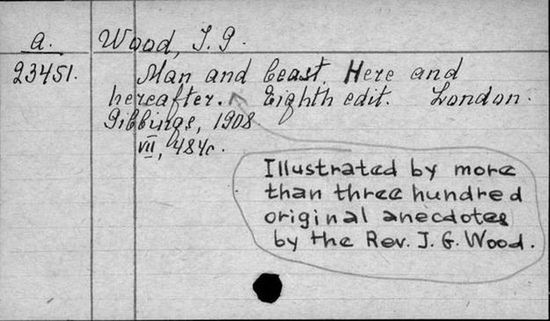 a. Wood, J. G.
23451. Man and beast. Here and
hereafter. Eighth edit. London.
Gibbings, 1908.
VII, 484c.
Illustrated by more
than three hundred
original anecdotes
by the Rev. J. G. Wood.